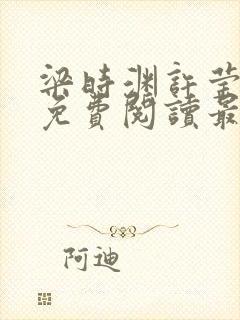 梁時渊許莹
免費閱讀最
阿迪